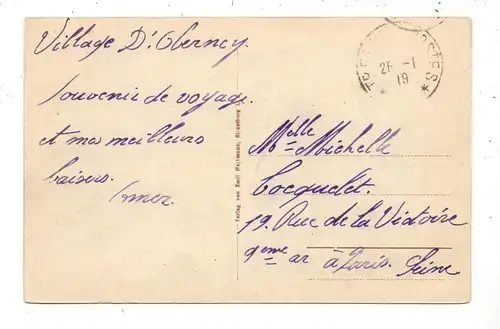 Village D'Oberney.
Souvenir de voyage
et mes meilleurs
baisers.
Verlag von Emil Hartmann, Strassburg
POSTES
26 -1
19
* *
Melle Michelle
Cocquelet.
19. Rue de la Victoire
9eme ar à Paris. Seine